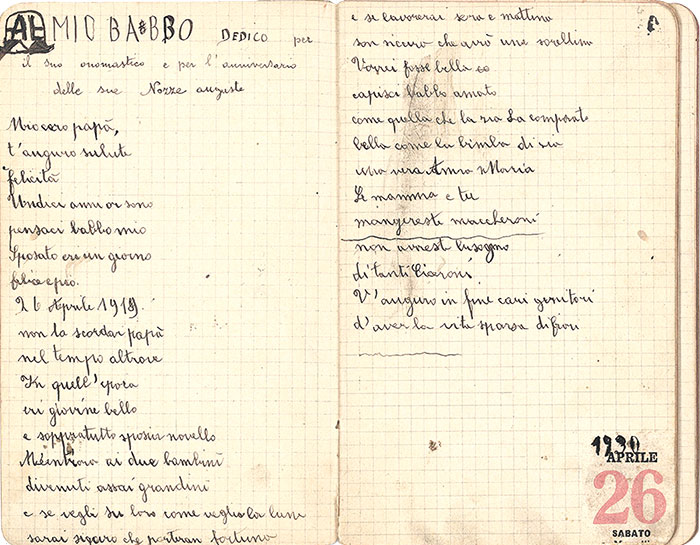 AL MIO BABBO DEDICO per
il suo onomastico e per l'anniversario
delle sue Nozze auguste
Mio caro papà,
t'auguro salute
felicità
Undici anni or sono
pensaci babbo mio
Sposato eri un giorno
felice e pio.
26 Aprile 1919.
non la scordar papà
nel tempo altrove
In quell'epoca
eri giovine bello
e soppratutto sposin novello
Méentrora ai due bambini
divenuti assai grandini
e se vegli su loro come veglia la luna
sarai sicuro che portran fortuna
e se lavorerai sera e mattina
son sicuro che avrò una sorellina
Vorrei fosse bella
capisci babbo amato
come quella che la zia La comprato
bella come la bimba di zia
una vera Anna Maria
Le mamma e tu
mangereste maccheroni
non avrest bisogno
di tanti
V'auguro in fine cari genitori
d'aver la vita sparsa di fiori
1930
APRILE
26
SABATO